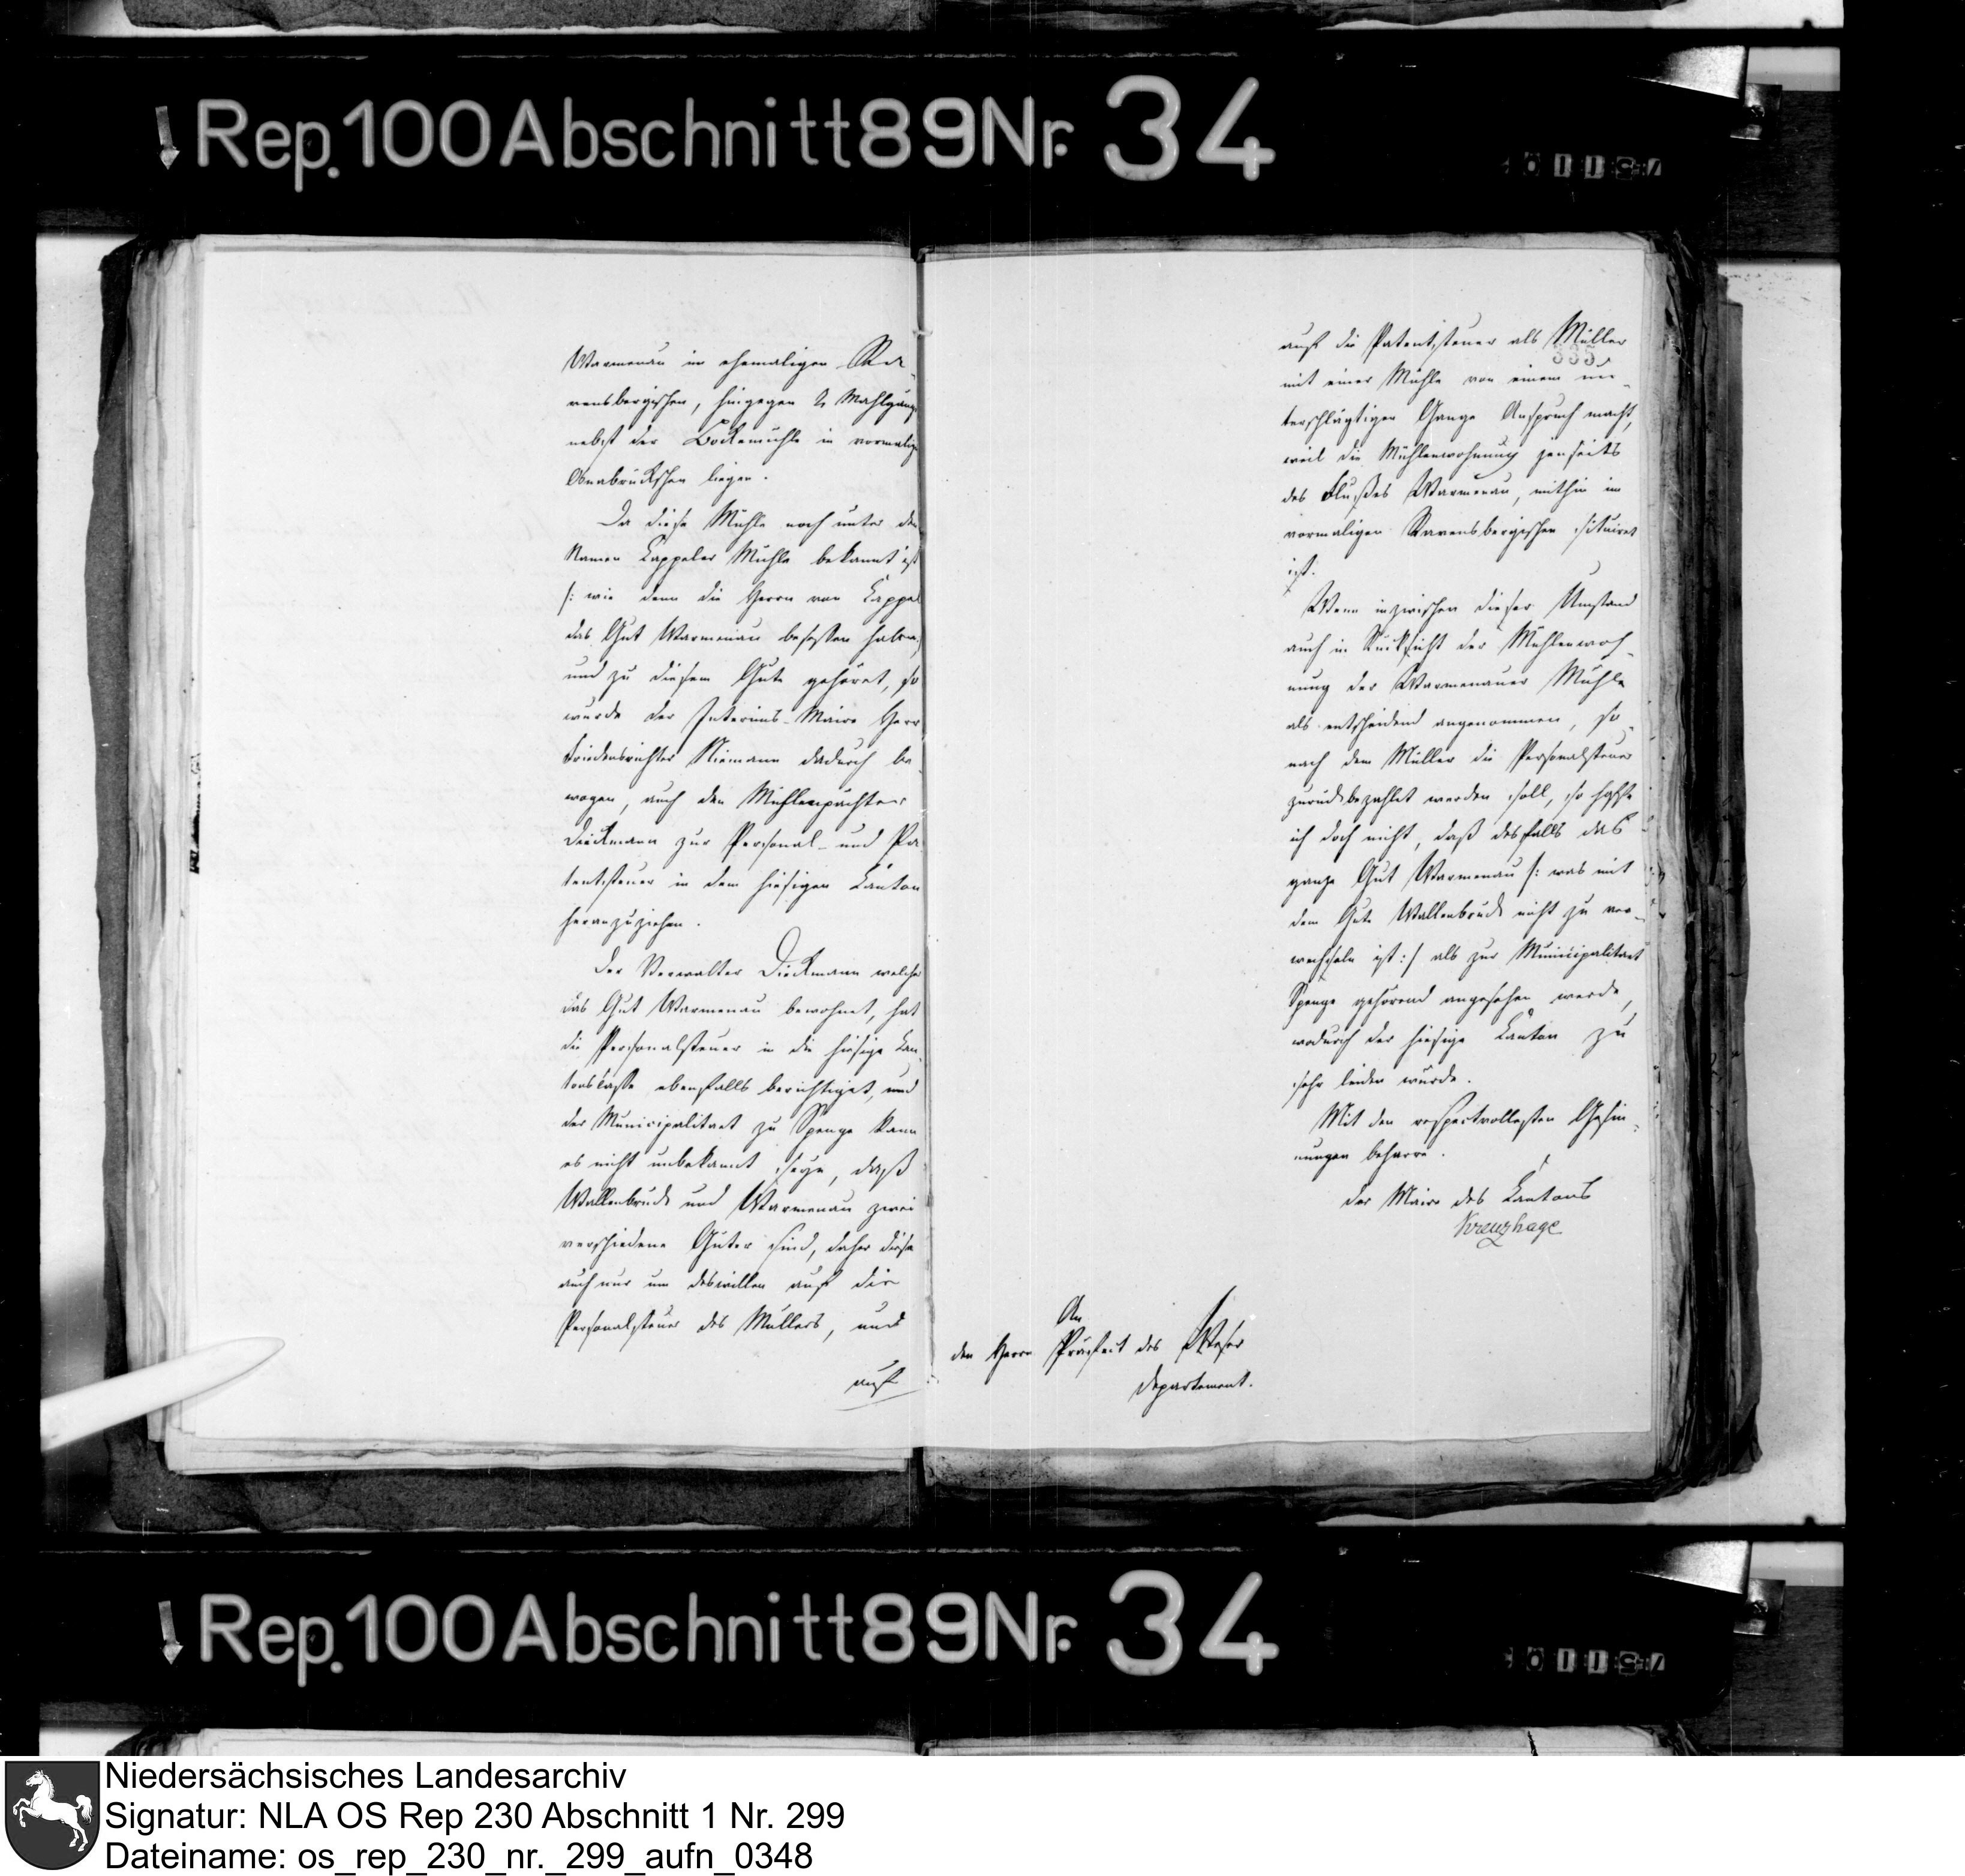 Rep. 100 Abschnitt 89 Nr. 34
Warmenau im ehemaligen Ra-
vensbergischen, hingegen 2 Mahlgänge
nebst der Bockemühle in vormalig
Osnabrückschen liegen.
Da diese Mühle noch unter dem
Namen Kappeler Mühle bekannt ist
/: wie denn die Herrn von Kappel
das Gut Warmenau besessen haben,
und zu diesem Gute gehöret, so
wurde der Interims-Maire Herr
Friedensrichter Niemann dadurch be-
wogen, auch den Mühlenpächter
Dieckmann zur Personal- und Pa-
tentsteuer in dem hiesigen Canton
heranzuziehen.
Der Verwalter Dieckmann welcher
das Gut Warmenau bewohnet, hat
die Personalsteuer in die hiesige Can-
tonskasse ebenfalls berichtiget, und
der Municipalitaet zu Spenge kann
es nicht unbekannt seyn, daß
Wallenbrück und Warmenau zwei
verschiedene Güter sind, daher diese
auch nur um deswillen auf die
Personalsteuer des Müllers, und
auf
auf die Patentsteuer als Müller
335
mit einer Mühle von einem un-
terschlägtigen Gange Anspruch macht,
weil die Mühlenwohnung jenseits
des Flußes Warmenau, mithin im
vormaligen Ravensbergischen situiret
ist.
Wenn inzwischen dieser Umstand
auch in Rücksicht der Mühlenwoh-
nung der Warmenauer Mühle
als entscheidend angenommen, so-
nach dem Müller die Personalsteuer
zurückbezahlet werden soll, so hoffe
ich doch nicht, daß desfalls das
ganze Gut Warmenau /: was mit
dem Gute Wallenbrück nicht zu ver-
wechseln ist :/ als zur Municipalitaet
Spenge gehörend angesehen werde,
wodurch der hiesige Canton zu
sehr leiden würde.
Mit den respectvollesten Gesin-
nungen beharre.
Der Maire des Cantons
Kreuzhage
An
den Herrn Präfect des Weser
Departement.
Rep. 100 Abschnitt 89 Nr. 34
Niedersächsisches Landesarchiv
Signatur: NLA OS Rep 230 Abschnitt 1 Nr. 299
Dateiname: os_rep_230_nr._299_aufn_0348